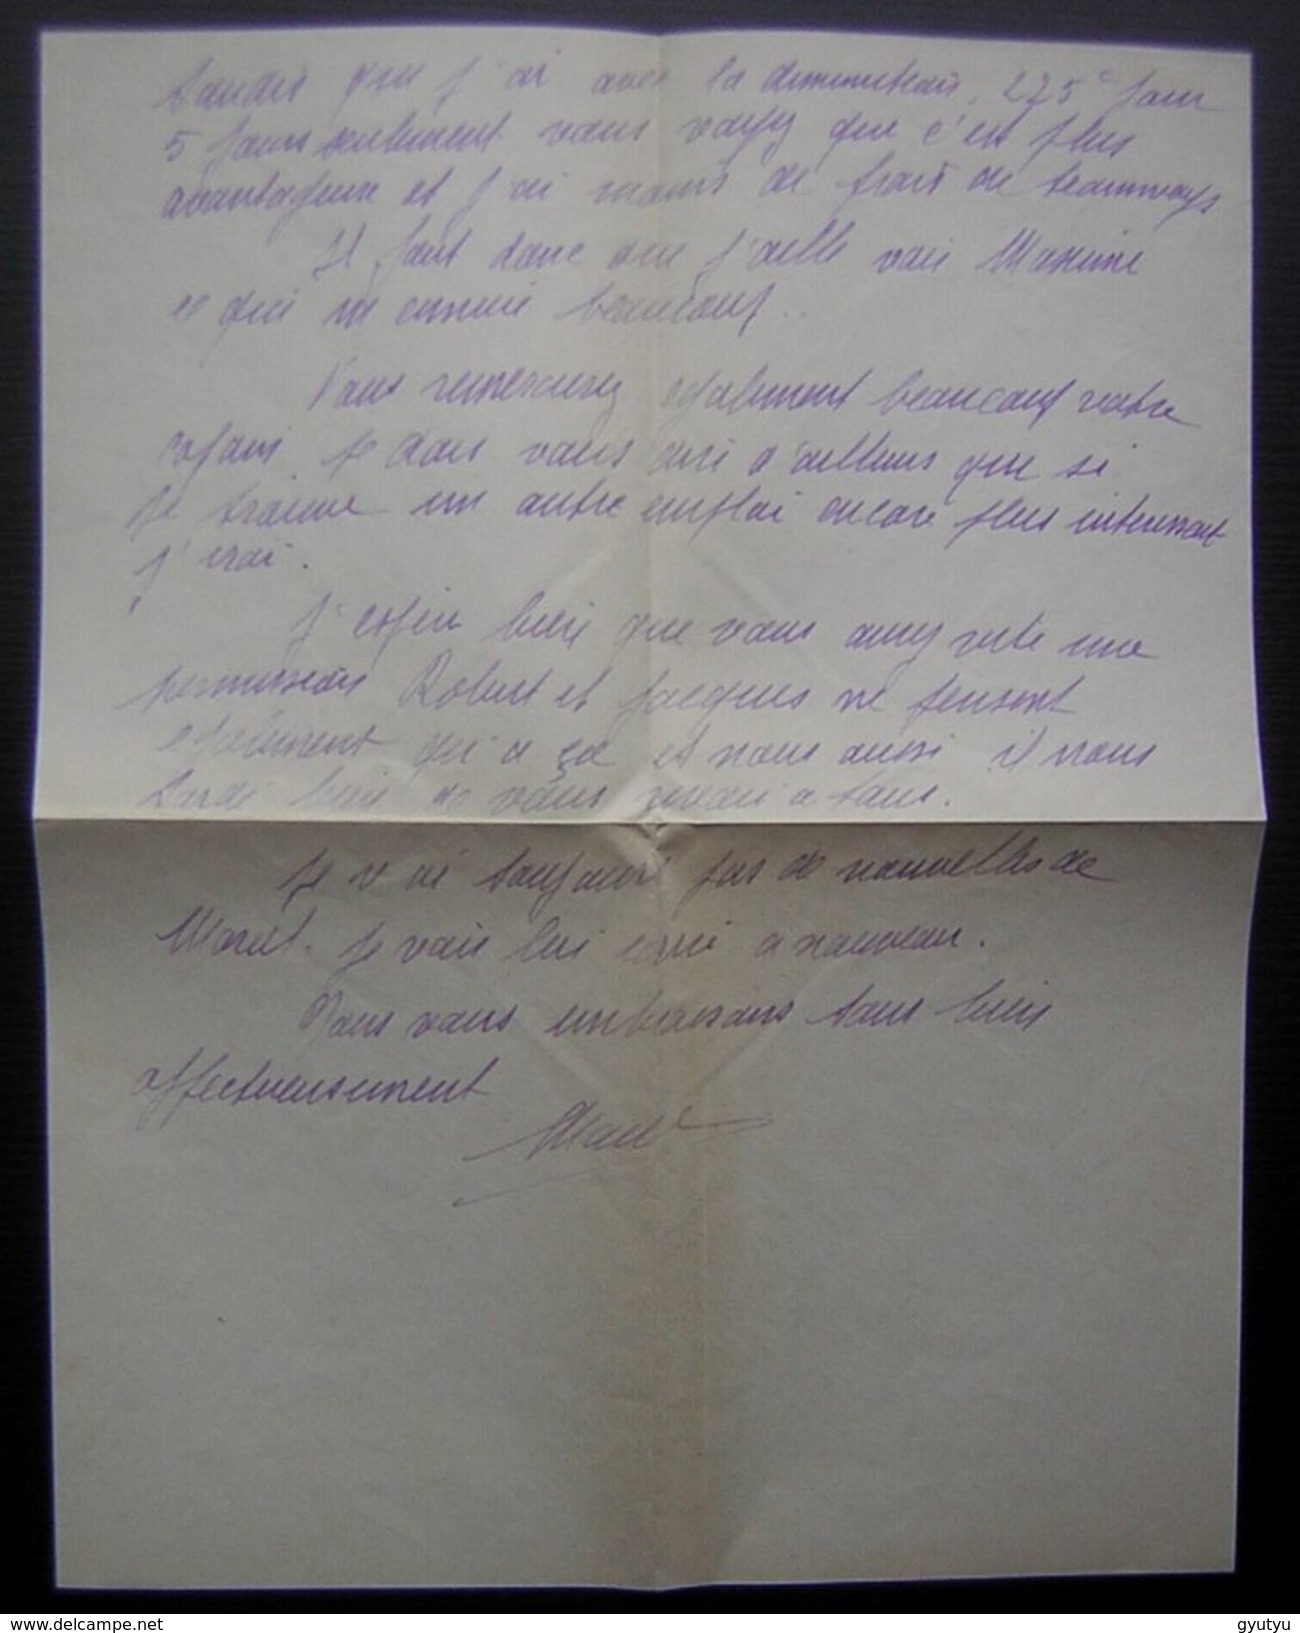 tandis que j'ai avec la diminution 275 pour
5 jours seulement vous voyez que c'est plus
avantageux et j'ai moins de frais de tramways
Il faut donc que j'aille voir Maxime
ce qui m'ennuie beaucoup..
Vous remercierez également beaucoup votre
copain. Je dois vous dire d'ailleurs que si
je trouve un autre emploi encore plus interessant
j'irai.
J'espère bien que vous aurez vite une
permission Robert et Jacques ne pensent
également qu'à ça et nous aussi il nous
tarde bien de vous revoir a tous.
Je n'ai toujours pas de nouvelles de
Marcel. Je vais lui écrire a nouveau.
Nous vous embrassons tous bien
affectueusement
gyutyu
delcampe.net